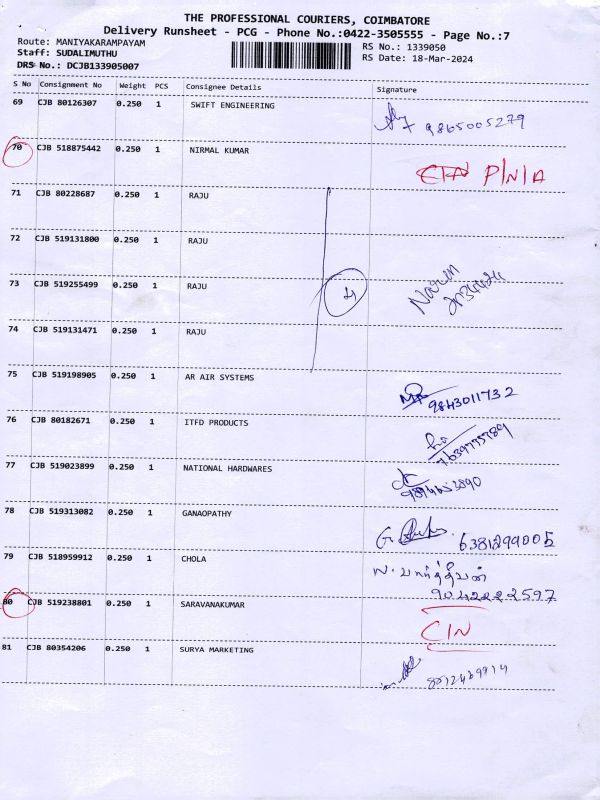 THE PROFESSIONAL COURIERS, COIMBATORE
Delivery Runsheet - PCG - Phone No.:0422-3505555 - Page No.:7
Route: MANIYAKARAMPAYAM
RS No.: 1339050
Staff: SUDALIMUTHU
RS Date: 18-Mar-2024
DRS No.: DCJB133905007
S No Consignment No Weight PCS Consignee Details Signature
69 CJB 80126307 0.250 1 SWIFT ENGINEERING
9865005279
70 CJB 518875442 0.250 1 NIRMAL KUMAR
P/N/A
71 CJB 80228687 0.250 1 RAJU
72 CJB 519131800 0.250 1 RAJU
73 CJB 519255499 0.250 1 RAJU
4
74 CJB 519131471 0.250 1 RAJU
75 CJB 519198905 0.250 1 AR AIR SYSTEMS
9843011732
76 CJB 80182671 0.250 1 ITFD PRODUCTS
77 CJB 519023899 0.250 1 NATIONAL HARDWARES
78 CJB 519313082 0.250 1 GANAOPATHY
6381299005
79 CJB 518959912 0.250 1 CHOLA
9042222597
80 CJB 519238801 0.250 1 SARAVANAKUMAR
CIN
81 CJB 80354206 0.250 1 SURYA MARKETING